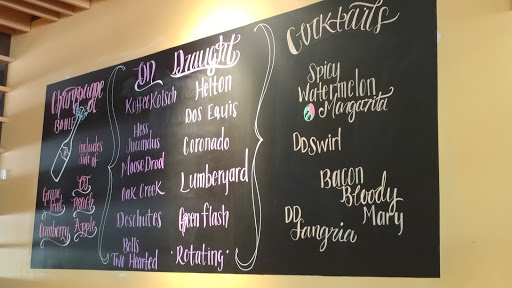 Champagne
Bottle
includes
side of
Grape
fruit
OJ
Peach
Cranberry
Apple
On Draught
Koffee Kolsch
Hess
Jucundus
Moose Drool
Oak Creek
Deschutes
Bells
Two Hearted
Helton
Dos Equis
Coronado
Lumberyard
Green flash
"Rotating"
Cocktails
Spicy
Watermelon
Margarita
DD Swirl
Bacon
Bloody
Mary
DD
Sangria